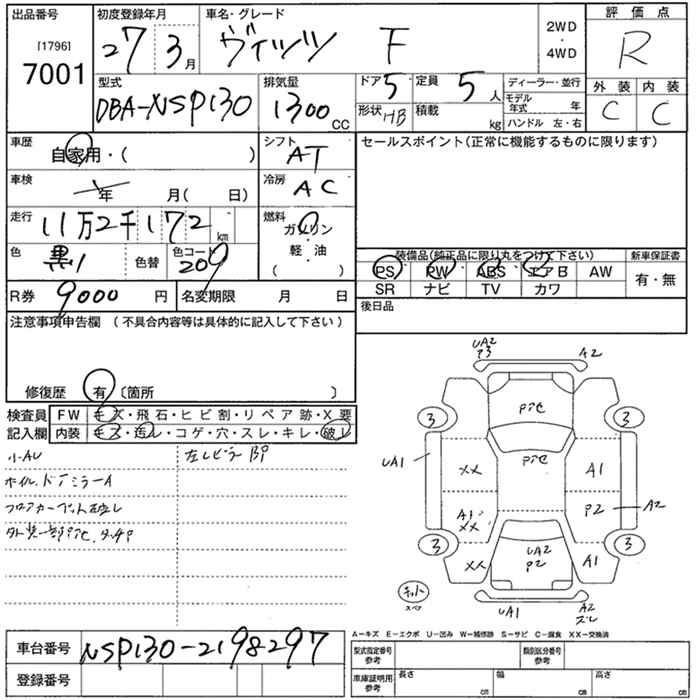 出品番号
[1796]
7001
初度登録年月
27 3月
車名・グレード
ヴィッツ F
2WD
・
4WD
評価点
R
型式
DBA-NSP130
排気量
1300CC
ドア 5
定員 5人
形状 HB
積載 kg
ディーラー・並行
モデル年式 年
ハンドル 左・右
外装 内装
C C
車歴
自家用・( )
シフト
AT
セールスポイント(正常に機能するものに限ります)
車検
年 月( 日)
冷房
AC
走行
11万2千172km
燃料
ガソリン
・
軽・油
( )
色
黒
色替
色コード
209
装備品(純正品に限り丸をつけて下さい)
新車保証書
PS PW ABS エアB AW
有・無
SR ナビ TV カワ
R券 9000円
名変期限 月 日
後日品
注意事項申告欄 (不具合内容等は具体的に記入して下さい)
修復歴 有 〔箇所 〕
検査員
記入欄
FW キズ・飛石・ヒビ割・リペア跡・X要
内装 キズ・汚レ・コゲ・穴・スレ・キレ・破レ
小AU
左しピラーBP
ホイル、ドアミラーA
フロアカーペット破レ
UA2
P3
A2
3
3
UA1
XX
A1
A1
XX
P2
A2
3
3
XX
UA2
P2
A1
キット
スペア
UA1
A2
スレ
A-キズ E-エクボ U-凹み W-補修跡 S-サビ C-腐食 XX-交換済
車台番号
NSP130-2198297
登録番号
型式指定番号
参考
類別区分番号
参考
車庫証明用
参考
長さ cm
幅 cm
高さ cm